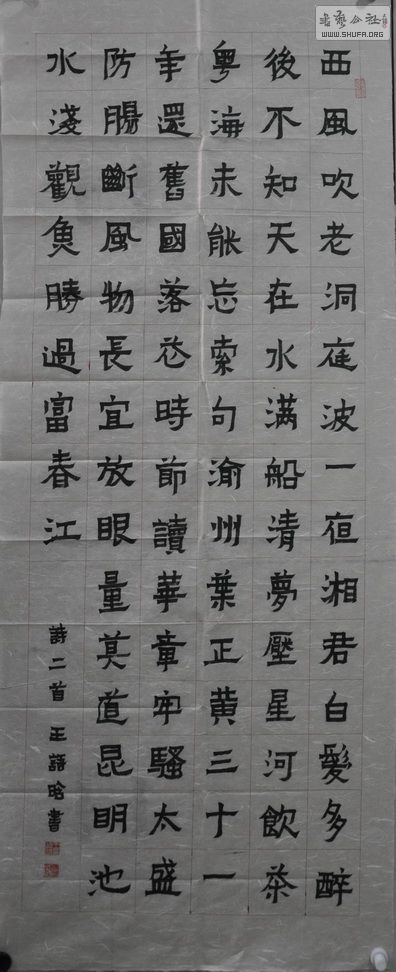 西風吹老洞庭波一夜湘君白髮多醉
後不知天在水滿船清夢壓星河飲茶
粵海未能忘索句渝州葉正黄三十一
年還舊國落花時節讀華章牢騷太盛
防腸斷風物長宜放眼量莫道昆明池
水淺觀魚勝過富春江
詩二首 王詩晗書
書藝公社
WWW.SHUFA.ORG